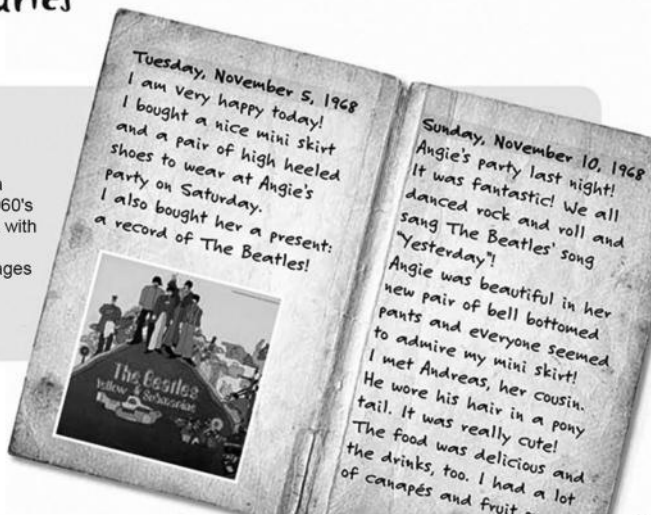 Tuesday, November 5, 1968
I am very happy today!
I bought a nice mini skirt
and a pair of high heeled
shoes to wear at Angie's
party on Saturday.
I also bought her a present:
a record of The Beatles!
The Beatles
Yellow Submarine
Sunday, November 10, 1968
Angie's party last night!
It was fantastic! We all
danced rock and roll and
sang The Beatles' song
"Yesterday"!
Angie was beautiful in her
new pair of bell bottomed
pants and everyone seemed
to admire my mini skirt!
I met Andreas, her cousin.
He wore his hair in a pony
tail. It was really cute!
The food was delicious and
the drinks, too. I had a lot
of canapés and fruit
60's
with